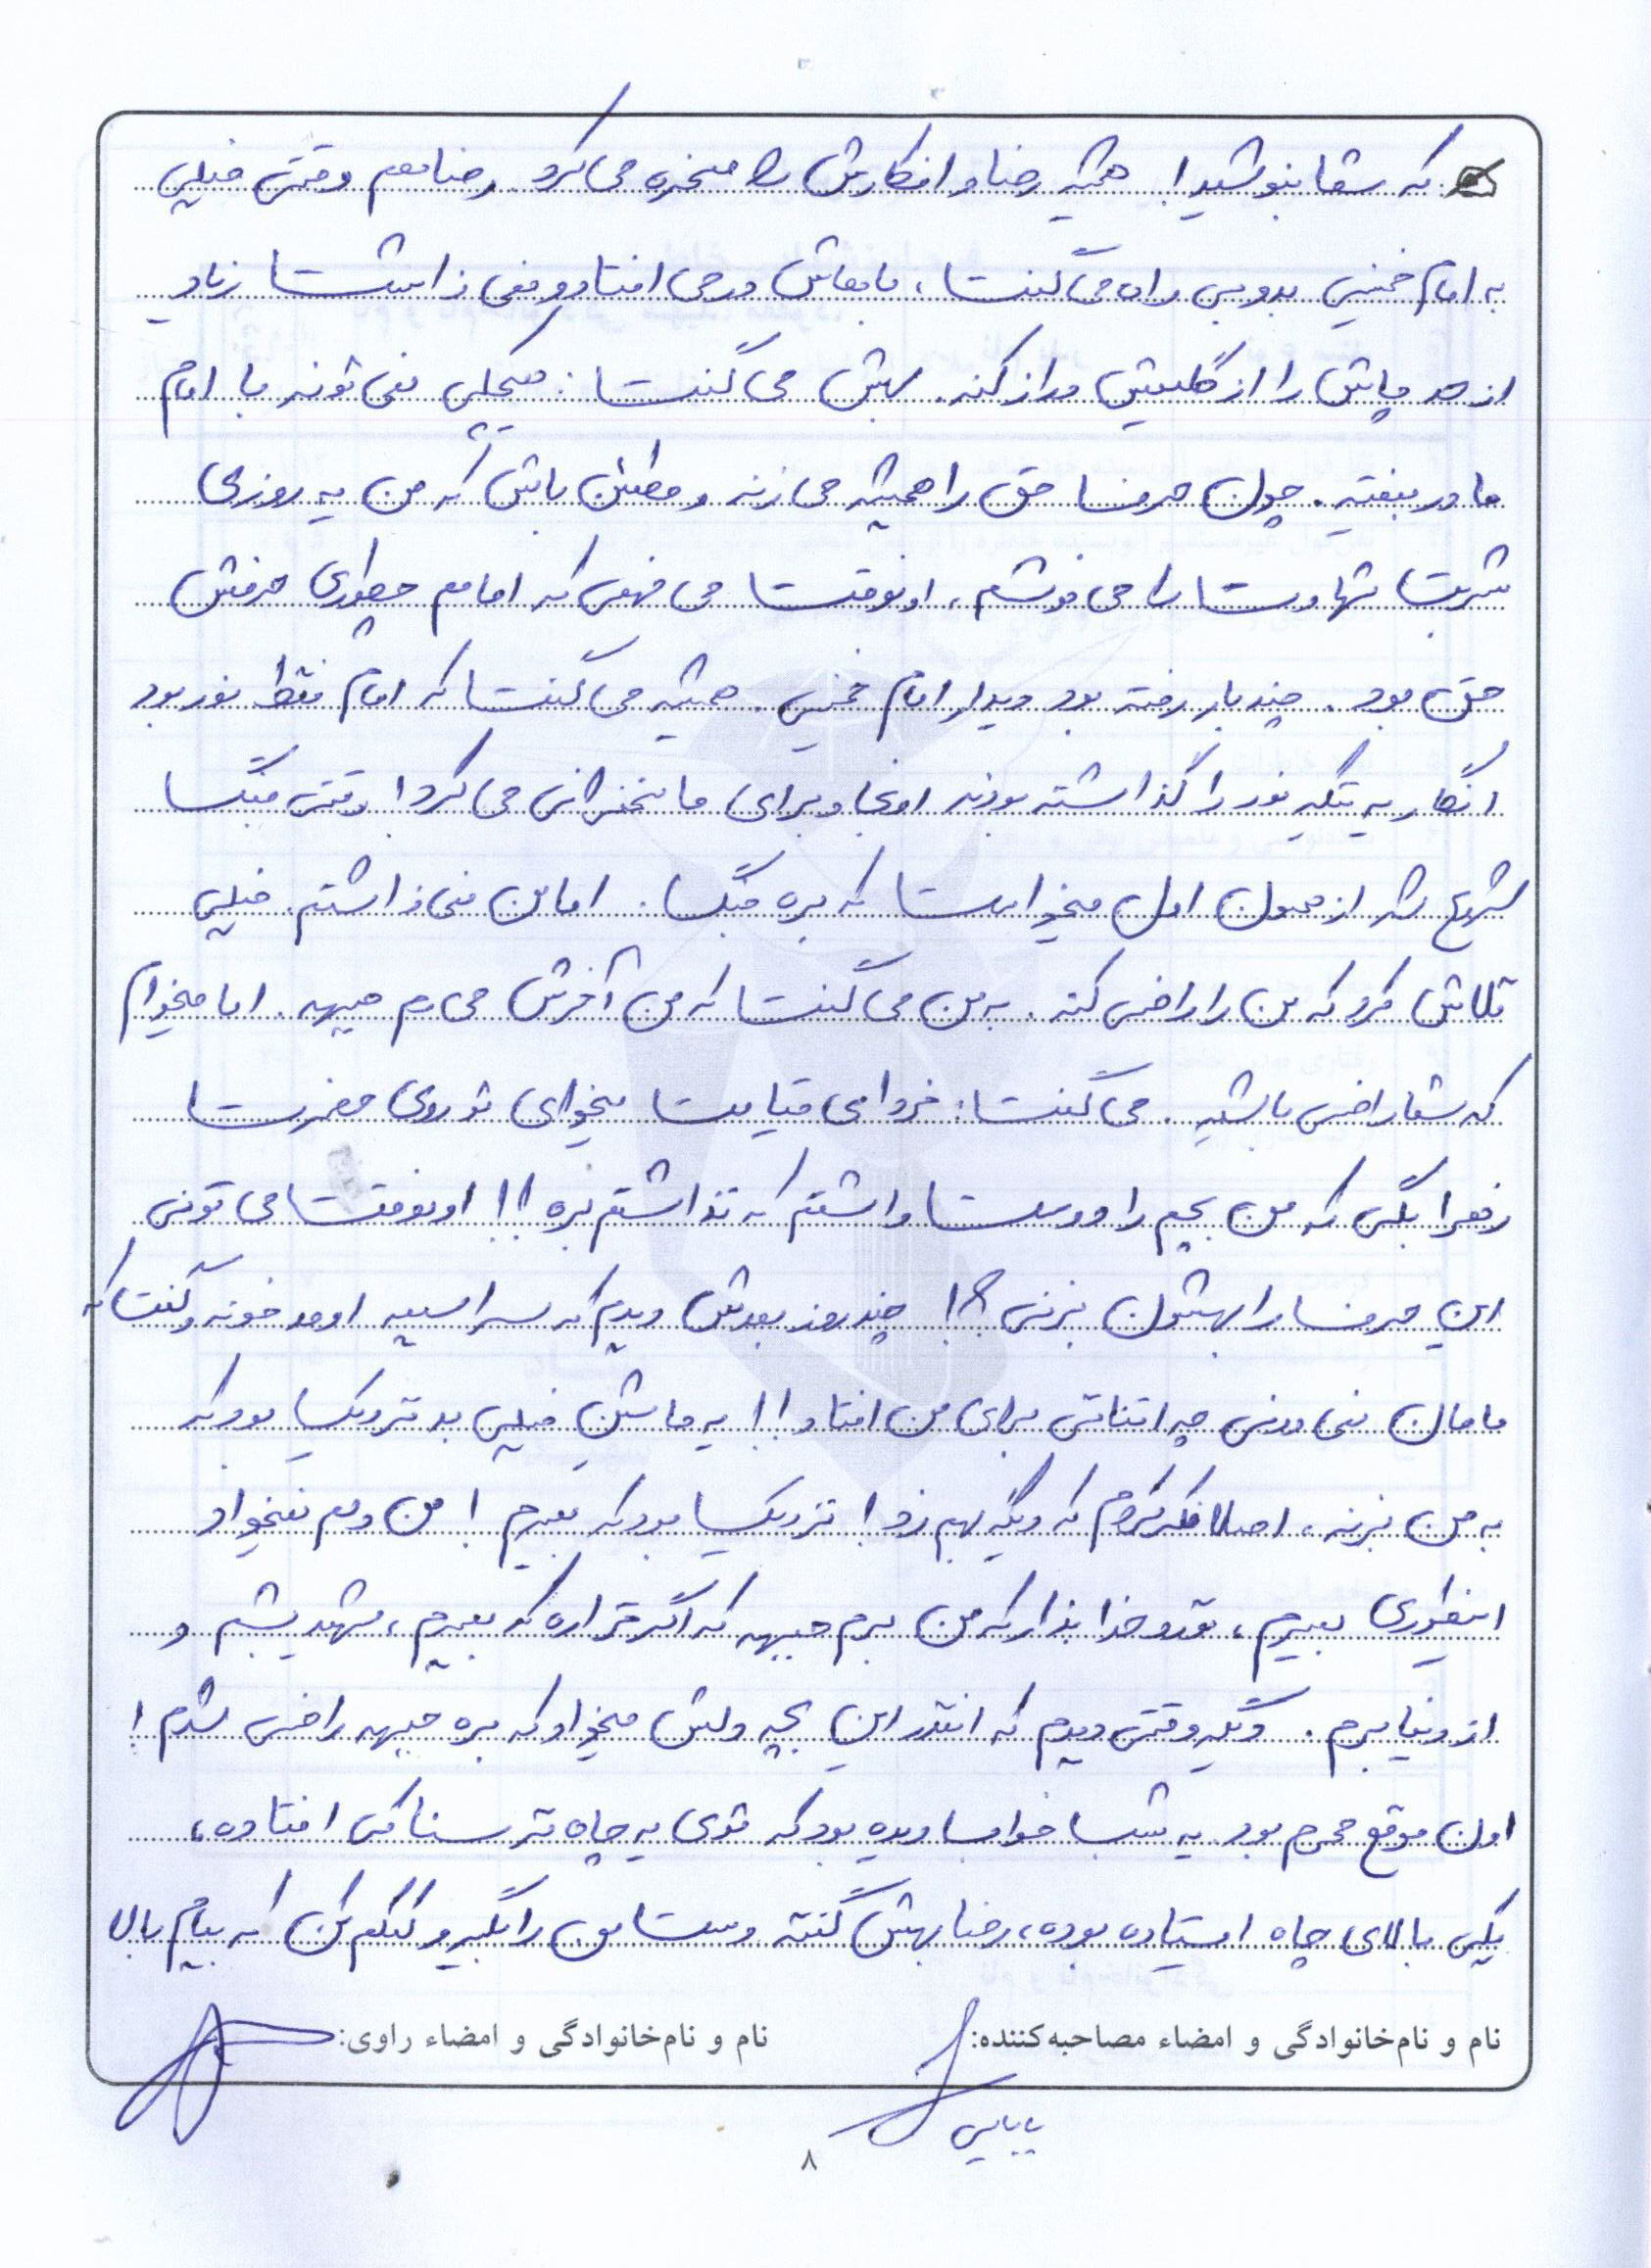 که شما بنوشید! همیشه رضا و افکارش را مسخره می‌کرد. رضا هم وقتی خیلی
به امام خمینی بدوبی راه می‌گفت، باهاش در می‌افتاد و نمی‌ذاشت زیاد
از حد پاش را از گلیمش دراز کنه. بهش می‌گفت: هیچکی نمی‌تونه با امام
ما در بیفته. چون حرف حق را همیشه می‌زنه و مطمئن باش که من یه روزی
شربت شهادت را می‌نوشم، اونوقت می‌فهمی که امامم چطوری حرفش
حق بود. چند بار رفته بود دیدار امام خمینی. همیشه می‌گفت که امام فقط نور بود
انگار یه تیکه نور را گذاشته بودند اونجا و برای ما سخنرانی می‌کرد! وقتی جنگ
شروع شد از همون اول میخواست که بره جنگ. اما من نمی‌ذاشتم. خیلی
تلاش کرد که من را راضی کنه. به من می‌گفت که من آخرش می‌رم جبهه. اما میخوام
که شما راضی باشید. می‌گفت: فردای قیامت میخوای تو روی حضرت
زهرا بگی که من بچم را دوست داشتم که نذاشتم بره!! اونوقت می‌تونی
این حرف را بهشون بزنی؟! چند روز بعدش دیدم که سراسیمه اومد خونه و گفت که
مامان نمی‌دونی چه اتفاقی برای من افتاد!! یه ماشین خیلی بد نزدیک بود که
به من بزنه، اصلا فکر کردم که دیگه بهم زد! نزدیک بود که بمیرم! من دلم نمیخواد
اینطوری بمیرم، تو رو خدا بذار که من برم جبهه که اگر قراره که بمیرم، شهید بشم و
از دنیا برم. دیگه وقتی دیدم که انقدر این بچه دلش میخواد که بره جبهه راضی شدم!
اون موقع محرم بود. یه شب خواب دیده بود که توی یه چاه ترسناکی افتاده،
یکی بالای چاه ایستاده بوده، رضا بهش گفته دست من را بگیر و کمکم کن که بیام بالا
نام و نام‌خانوادگی و امضاء مصاحبه‌کننده: نام و نام‌خانوادگی و امضاء راوی:
بابایی
۸